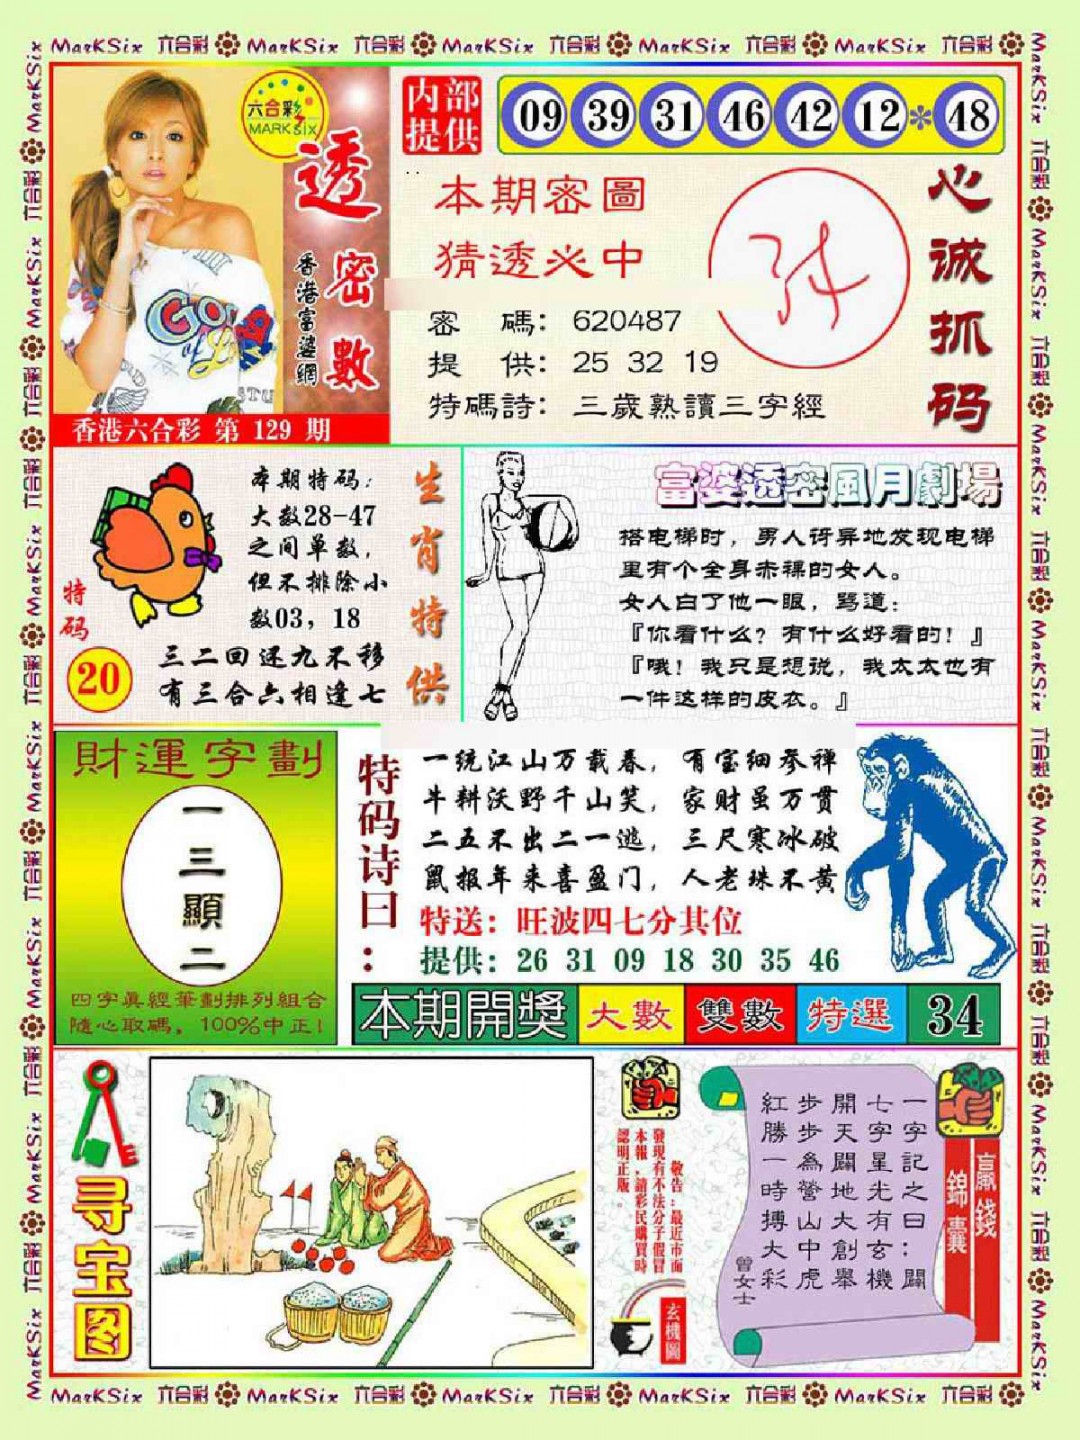 MarKSix 六合彩 MarKSix 六合彩 MarKSix 六合彩 MarKSix 六合彩 MarKSix 六合彩
六合彩
MARK SIX
透密數
香港富婆網
香港六合彩 第 129 期
内部
提供
09 39 31 46 42 12 * 48
本期密圖
猜透必中
密 碼：620487
提 供：25 32 19
特碼詩：三歲熟讀三字經
心诚抓码
本期特码：
大数28-47
之间单数，
但不排除小
数03，18
特码
20
三二回还九不移
有三合六相逢七
生肖特供
富婆透密風月劇場
搭电梯时，男人讶异地发现电梯
里有个全身赤裸的女人。
女人白了他一眼，骂道：
『你看什么？有什么好看的！』
『哦！我只是想说，我太太也有
一件这样的皮衣。』
財運字劃
一
三
顯
二
四字真經筆劃排列組合
隨心取碼，100%中正！
特码诗曰：
一统江山万载春，有宝细参禅
牛耕沃野千山笑，家财虽万贯
二五不出二一逃，三尺寒冰破
鼠报年来喜盈门，人老珠不黄
特送：旺波四七分其位
提供：26 31 09 18 30 35 46
本期開獎 大數 雙數 特選 34
寻宝图
敬告：最近市面
發現有不法分子假冒
本報，請彩民購買時
認明正版。
玄機圖
贏錢
錦囊
一字記之曰：闢
七字星光有玄機
開天闢地大創舉
步步為營山中虎
紅勝一時搏大彩
曾女士
MarKSix 六合彩 MarKSix 六合彩 MarKSix 六合彩 MarKSix 六合彩 MarKSix 六合彩